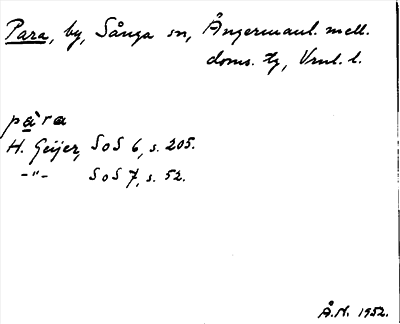 Para, by, Sånga sn, Ångermanl. mell.
doms. tg, Vrnl. l.
pàra
H. Geijer, SoS 6, s. 205.
-"- SoS 7, s. 52.
Å.N. 1952.